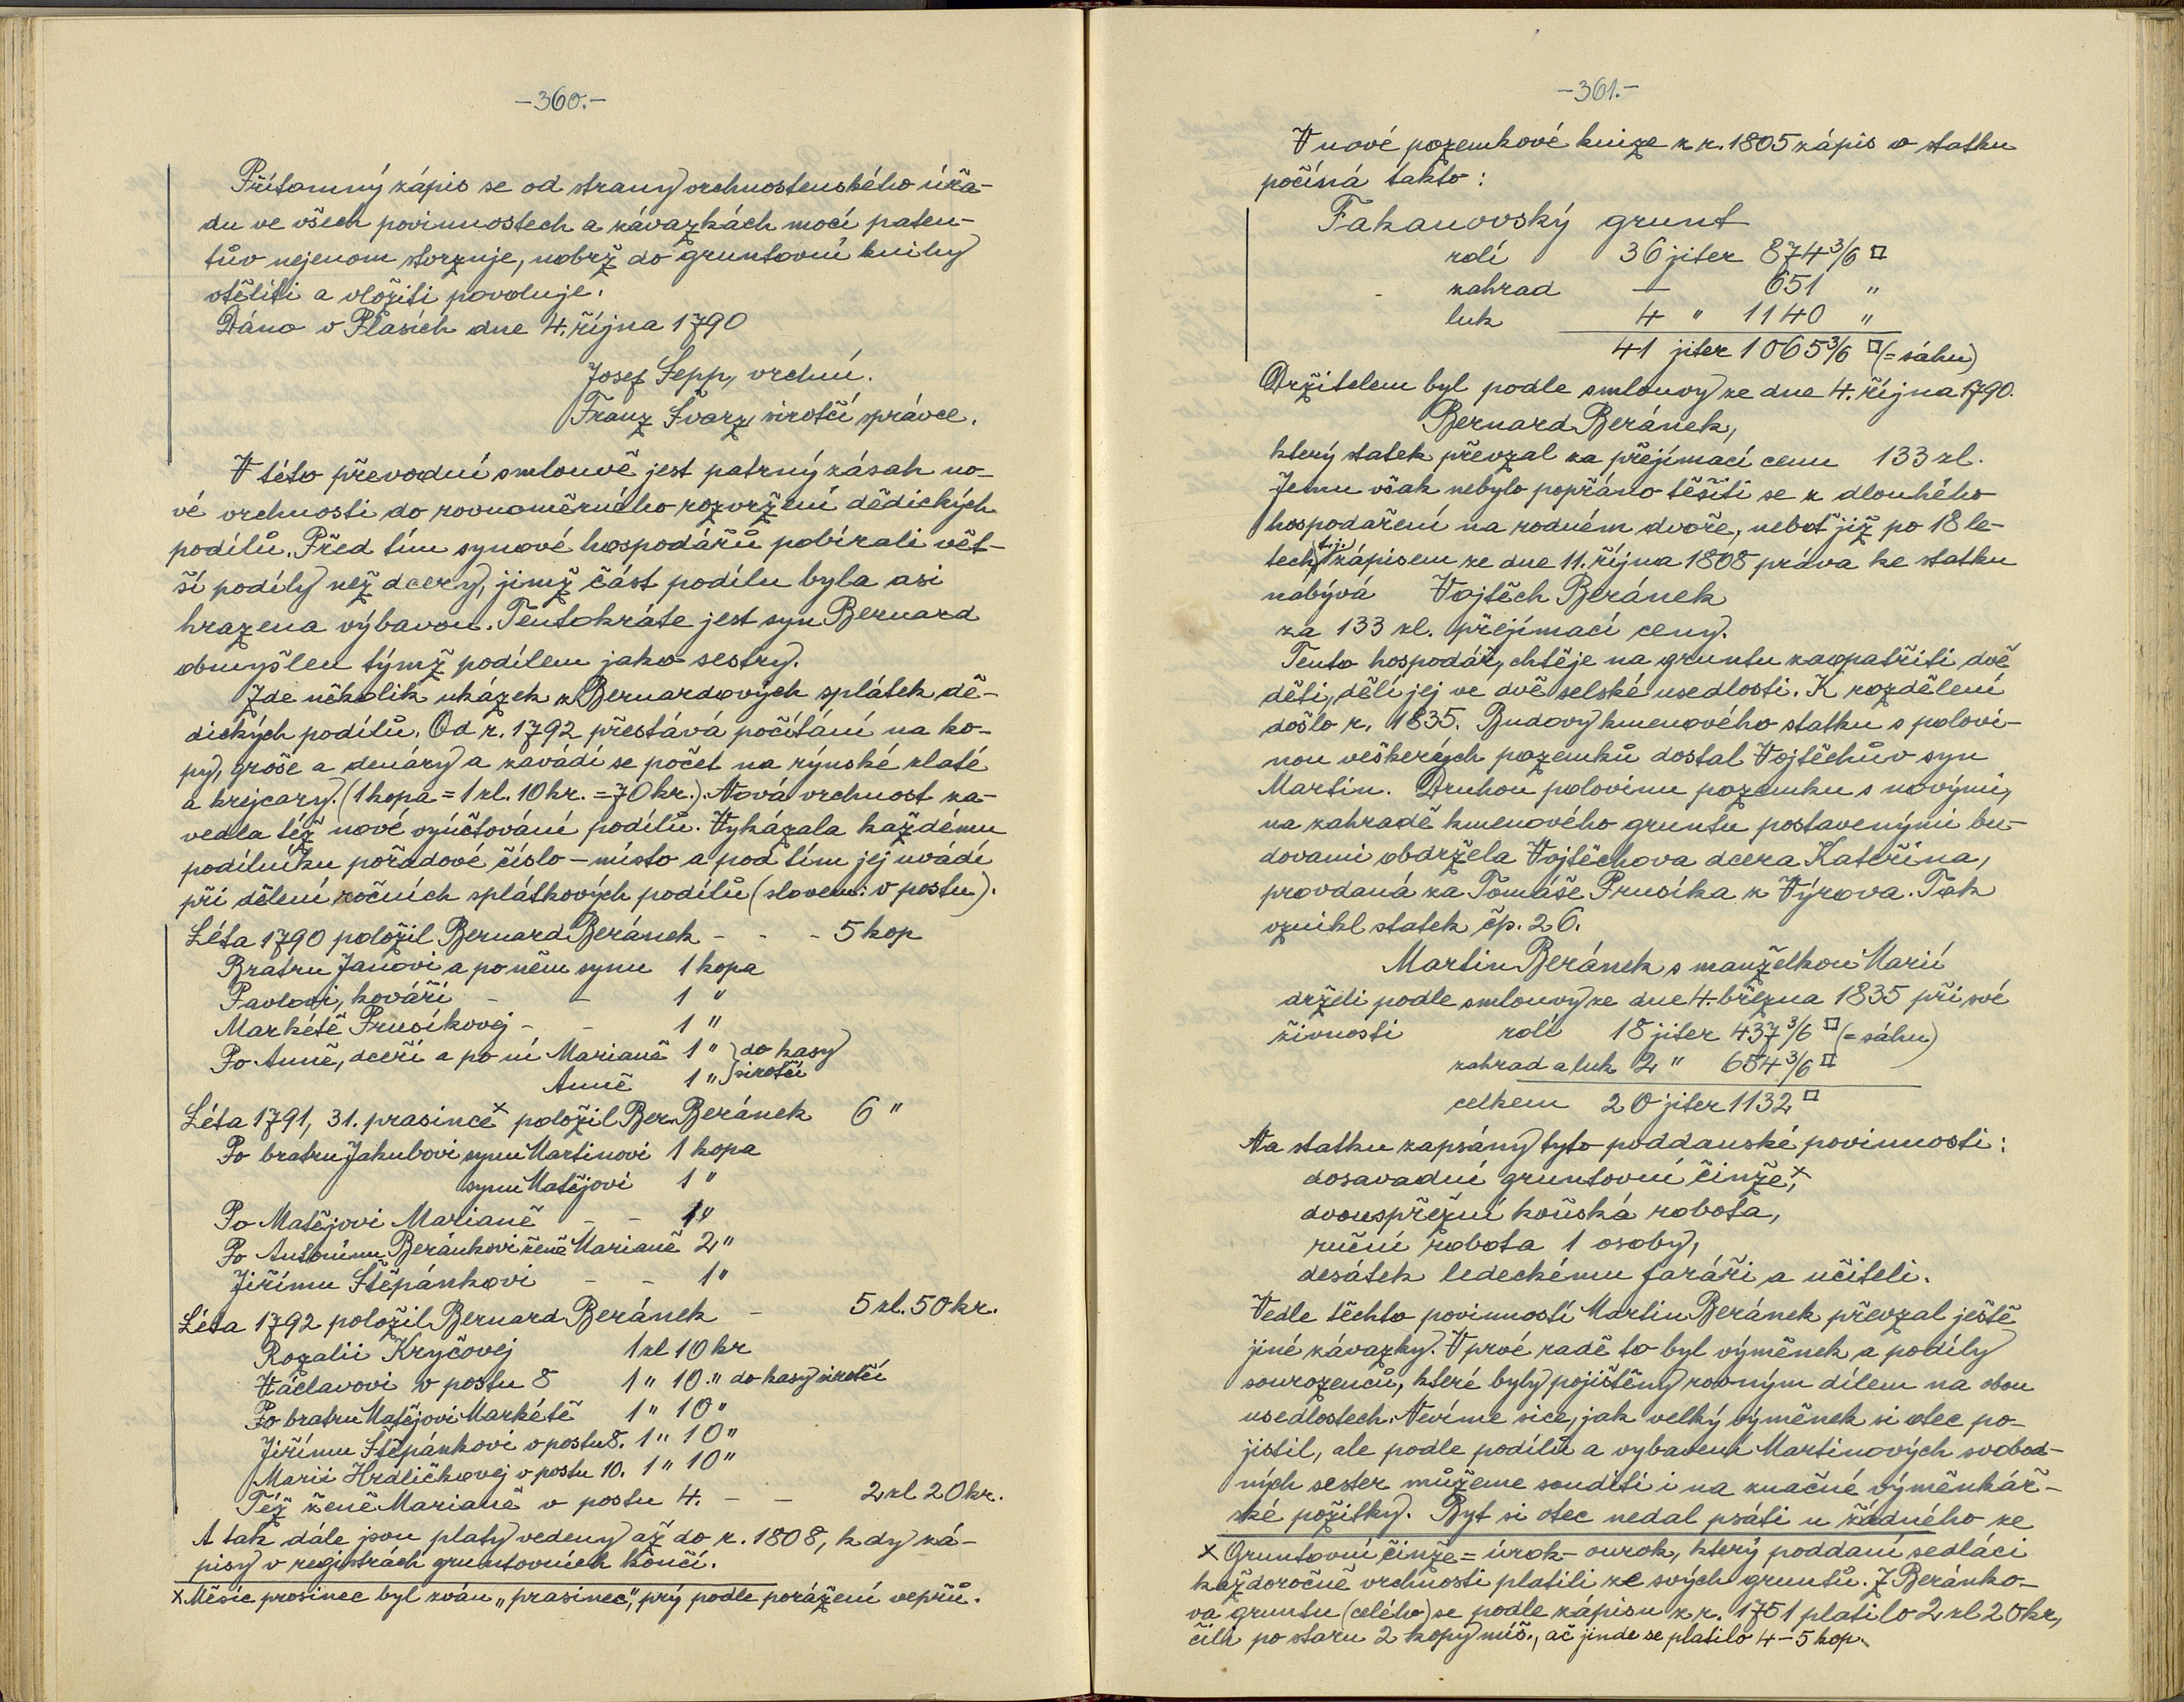 -360.-
Přítomný zápis se od strany vrchnostenského úřa-
du ve všech povinnostech a závazkách mocí paten-
tův nejenom stvrzuje, nobrž do gruntovní knihy
vtěliti a vložiti povoluje.
Dáno v Plasích dne 4. října 1790
Josef Sepp, vrchní.
Franz Švarz, sirotčí správce.
V této převodní smlouvě jest patrný zásah no-
vé vrchnosti do rovnoměrného rozvržení dědických
podílů. Před tím synové hospodářů pobírali vět-
ší podíly než dcery, jimž část podílu byla asi
hrazena výbavou. Tentokráte jest syn Bernard
obmyšlen týmž podílem jako sestry.
Zde několik ukázek z Bernardových splátek dě-
dických podílů. Od r. 1792 přestává počítání na ko-
py, groše a denáry a zavádí se počet na rýnské zlaté
a krejcary. (1 kopa = 1 zl. 10 kr. = 70 kr.). Nová vrchnost za-
vedla též nové vyúčtování podílů. Vykázala každému
podílníku pořadové číslo – místo a pod tím jej uvádí
při dělení ročních splátkových podílů (slovem: v postu).
Léta 1790 položil Bernard Beránek - - - 5 kop
Bratru Janovi a po něm synu 1 kopa
Pavlovi, kováři - - 1 "
Markétě Prusíkovej - - 1 "
Po Anně, dceři a po ní Marianě 1 " } do kasy
Anně 1 " } sirotčí
Léta 1791, 31. prasince x položil Ber. Beránek 6 "
Po bratru Jakubovi synu Martinovi 1 kopa
synu Matějovi 1 "
Po Matějovi Marianě - - 1 "
Po Antonínu Beránkovi ženě Marianě 2 "
Jiřímu Štěpánkovi - - 1 "
Léta 1792 položil Bernard Beránek - 5 zl. 50 kr.
Rozalii Kryčovej 1 zl 10 kr
Václavovi v postu 8 1 " 10 " do kasy sirotčí
Po bratru Matějovi Markétě 1 " 10 "
Jiřímu Štěpánkovi v postu 8. 1 " 10 "
Marii Hrdličkovej v postu 10. 1 " 10 "
Též ženě Marianě v postu 4. - - 2 zl 20 kr.
A tak dále jsou platy vedeny až do r. 1808, kdy zá-
pisy v registrách gruntovních končí.
x Měsíc prosinec byl zván „prasinec", prý podle porážení vepřů.
-361.-
V nové pozemkové knize z r. 1805 zápis o statku
počíná takto:
Fakanovský grunt
rolí 36 jiter 874 3/6 □
zahrad — 651 "
luk 4 " 1140 "
41 jiter 1065 3/6 □ (= sáhů)
Držitelem byl podle smlouvy ze dne 4. října 1790.
Bernard Beránek,
který statek převzal za přejímací cenu 133 zl.
Jemu však nebylo popřáno těšiti se z dlouhého
hospodaření na rodném dvoře, neboť již po 18 le-
tech, t.j. zápisem ze dne 11. října 1808 práva ke statku
nabývá Vojtěch Beránek
za 133 zl. přejímací ceny.
Tento hospodář, chtěje na gruntu zaopatřiti dvě
děti, dělí jej ve dvě selské usedlosti. K rozdělení
došlo r. 1835. Budovy kmenového statku s polovi-
nou veškerých pozemků dostal Vojtěchův syn
Martin. Druhou polovinu pozemku s novými,
na zahradě kmenového gruntu postavenými bu-
dovami obdržela Vojtěchova dcera Kateřina,
provdaná za Tomáše Prusíka z Výrova. Tak
vznikl statek čp. 26.
Martin Beránek s manželkou Marií
drželi podle smlouvy ze dne 4. března 1835 při své
živnosti rolí 18 jiter 437 3/6 □ (= sáhů)
zahrad a luk 2 " 654 3/6 □
celkem 20 jiter 1132 □
Na statku zapsány tyto poddanské povinnosti:
dosavadní gruntovní činže, x
dvouspřežní koňská robota,
ruční robota 1 osoby,
desátek ledeckému faráři a učiteli.
Vedle těchto povinností Martin Beránek převzal ještě
jiné závazky. V prvé řadě to byl výměnek a podíly
sourozenců, které byly pojištěny rovným dílem na obou
usedlostech. Nevíme sice, jak velký výměnek si otec po-
jistil, ale podle podílů a vybavení Martinových svobod-
ných sester můžeme souditi i na značné výměnkář-
ské požitky. Byt si otec nedal psáti u žádného ze
x Gruntovní činže = úrok - ourok, který poddaní sedláci
každoročně vrchnosti platili ze svých gruntů. Z Beránko-
va gruntu (celého) se podle zápisu z r. 1751 platilo 2 zl 20 kr,
čili po staru 2 kopy míš., ač jinde se platilo 4 – 5 kop.